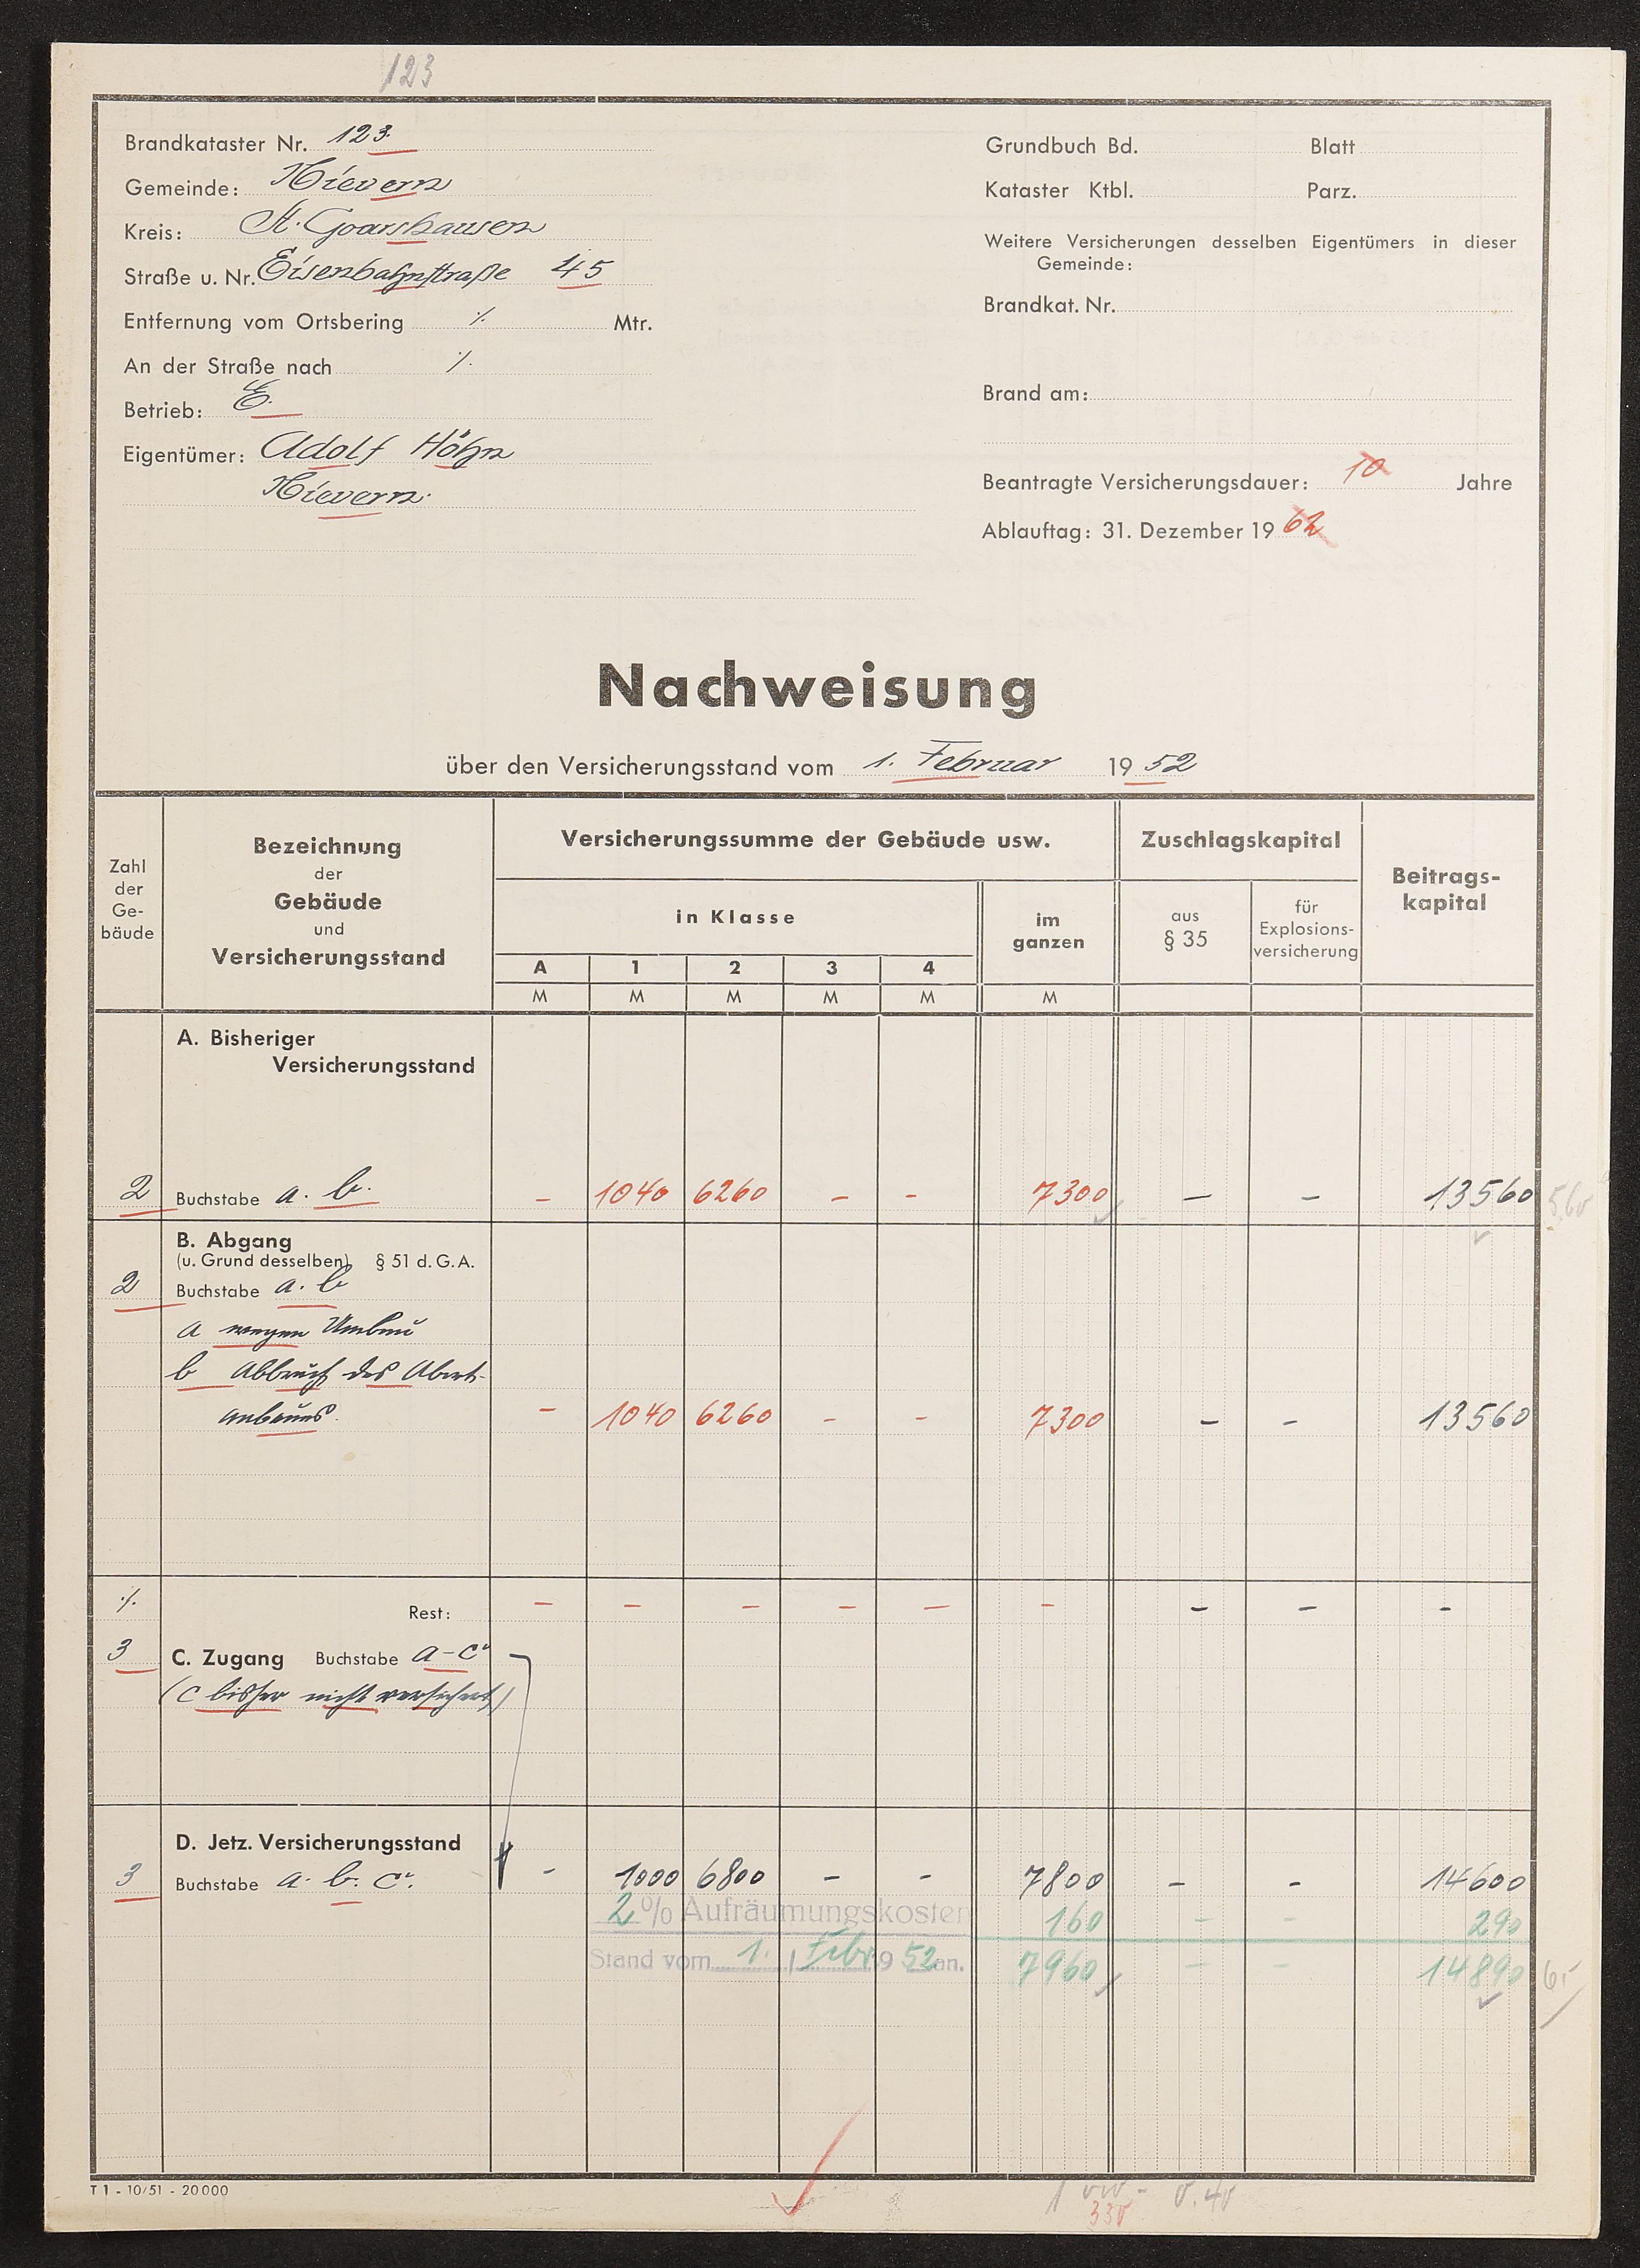 123
Brandkataster Nr. 123.
Gemeinde: Nievern
Kreis: St. Goarshausen
Straße u. Nr. Eisenbahnstraße 45
Entfernung vom Ortsbering ./. Mtr.
An der Straße nach ./.
Betrieb: E.
Eigentümer: Adolf Höhn
Nievern.
Grundbuch Bd. Blatt
Kataster Ktbl. Parz.
Weitere Versicherungen desselben Eigentümers in dieser
Gemeinde:
Brandkat. Nr.
Brand am:
Beantragte Versicherungsdauer: 10 Jahre
Ablauftag: 31. Dezember 19 62
Nachweisung
über den Versicherungsstand vom 1. Februar 19 52
Zahl der Ge- bäude
Bezeichnung
der
Gebäude
und
Versicherungsstand
Versicherungssumme der Gebäude usw.
in Klasse
A 1 2 3 4
M M M M M
im ganzen
M
Zuschlagskapital
aus § 35
für Explosions- versicherung
Beitrags- kapital
A. Bisheriger
Versicherungsstand
2 Buchstabe a. b. – 1040 6260 – – 7300 – – 13560 5,60
B. Abgang
(u. Grund desselben) § 51 d. G. A.
2 Buchstabe a. b
a wegen Umbau
b Abbruch des Abort-
anbaues. – 1040 6260 – – 7300 – – 13560
./. Rest: – – – – – – – – –
3 C. Zugang Buchstabe a – c
(c bisher nicht versichert)
D. Jetz. Versicherungsstand
3 Buchstabe a. b. c. – 1000 6800 – – 7800 – – 14600
2 % Aufräumungskosten 160 – – 290
Stand vom 1. Febr. 19 52 an. 7960 – – 14890 6,-
T 1 - 10/51 - 20000
330